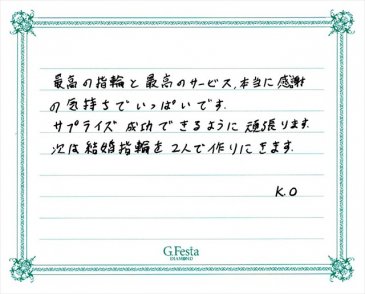 最高の指輪と最高のサービス、本当に感謝
の気持ちでいっぱいです.
サプライズ成功できるように頑張ります.
次は結婚指輪を2人で作りにきます.
K.O
G.Festa
DIAMOND